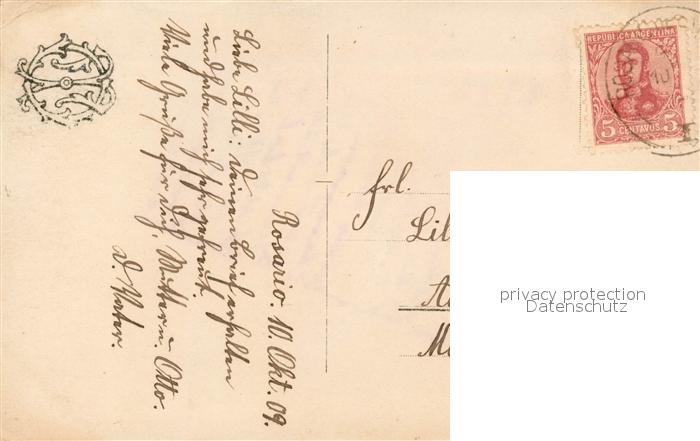 Rosario. 10. Okt. 09.
Liebe Lilli! Deinen Brief erhalten
und habe mich sehr gefreut.
Viele Grüße für dich, Mutter u. Otto.
D. Vater.
REPUBLICA ARGENTINA
5 CENTAVOS 5
ROSA
10
Frl.
Lil
A
M
privacy protection
Datenschutz